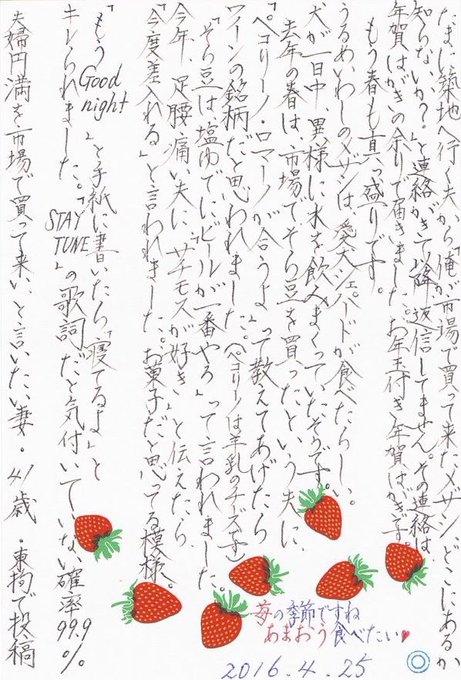 たまに築地へ行く夫から「俺が市場で買って来たメザシ、どこにあるか
知らないか？」と連絡がきて以降、返信してません。その連絡は
年賀はがきの余りで届きました。お年玉付き年賀はがきです。
もう春も真っ盛りです。
うるめいわしのメザシは、愛犬シェパードが食べたらしく。
犬が一日中、異様に水を飲みまくっていたそうです。
去年の春は、市場でそら豆を買ったという夫に、
「ペコリーノ・ロマーノが合うよ」って教えてあげたら
ワインの銘柄だと思われました…。（ペコリーノは羊乳のチーズです）
「そら豆は塩ゆでにビールが一番やろ」って言われました。
今年、足腰痛い夫に「サチモスが好き」と伝えたら、
「今度差入れる」と言われました。お菓子だと思てる模様。
「もうGood night」と手紙に書いたら「寝てるよ」と
キレられました。「STAY TUNE」の歌詞だと気付いていない確率99.9%
夫婦円満を市場で買って来い、と言いたい妻・41歳・東拘で投稿
苺の季節ですね
あまおう食べたい
2016.4.25